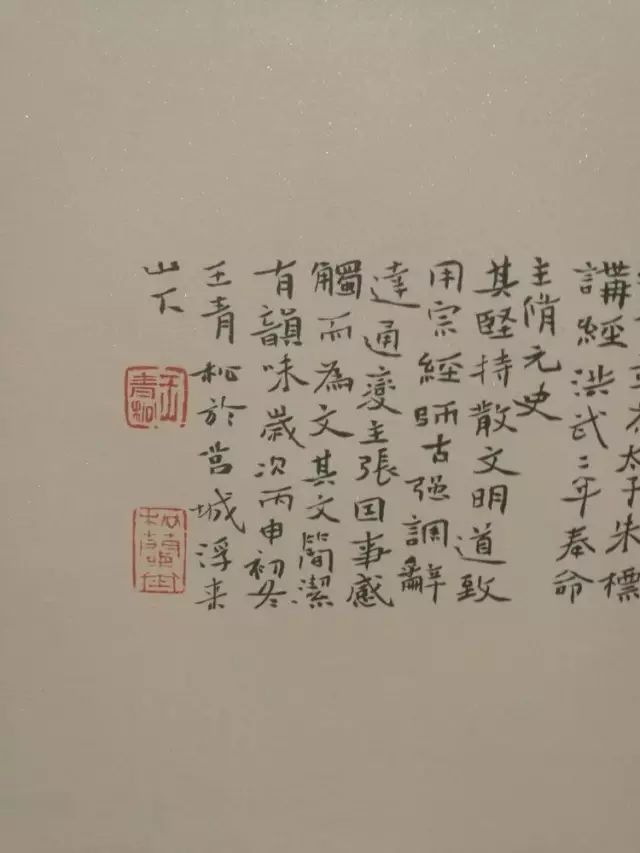 太子朱標
講經洪武二年奉命
主脩元史
其堅持散文明道致
用宗經師古強調辭
達通變主張因事感
觸而為文其文簡潔
有韻味歲次丙申初冬
王青松於莒城浮来
山下